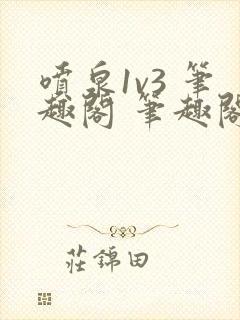 噴泉1v3 筆
趣閣 筆趣閣
莊錦田